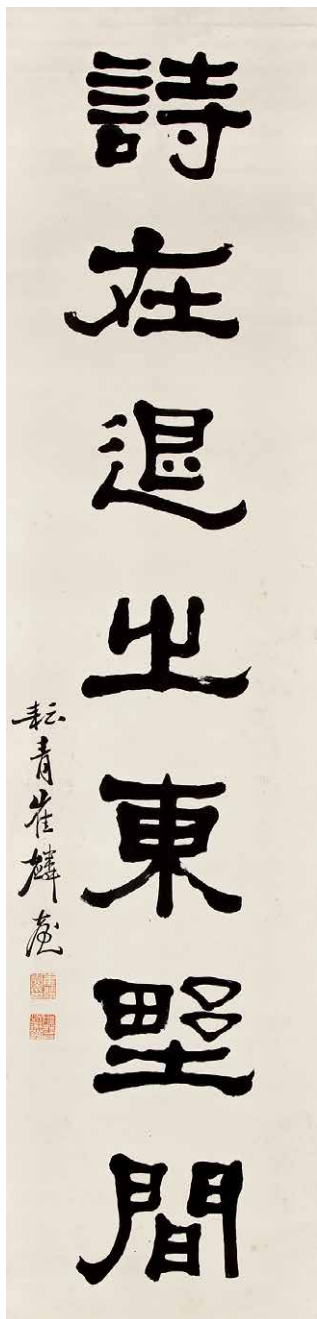 詩在退之東野間
耘青崔麟臺